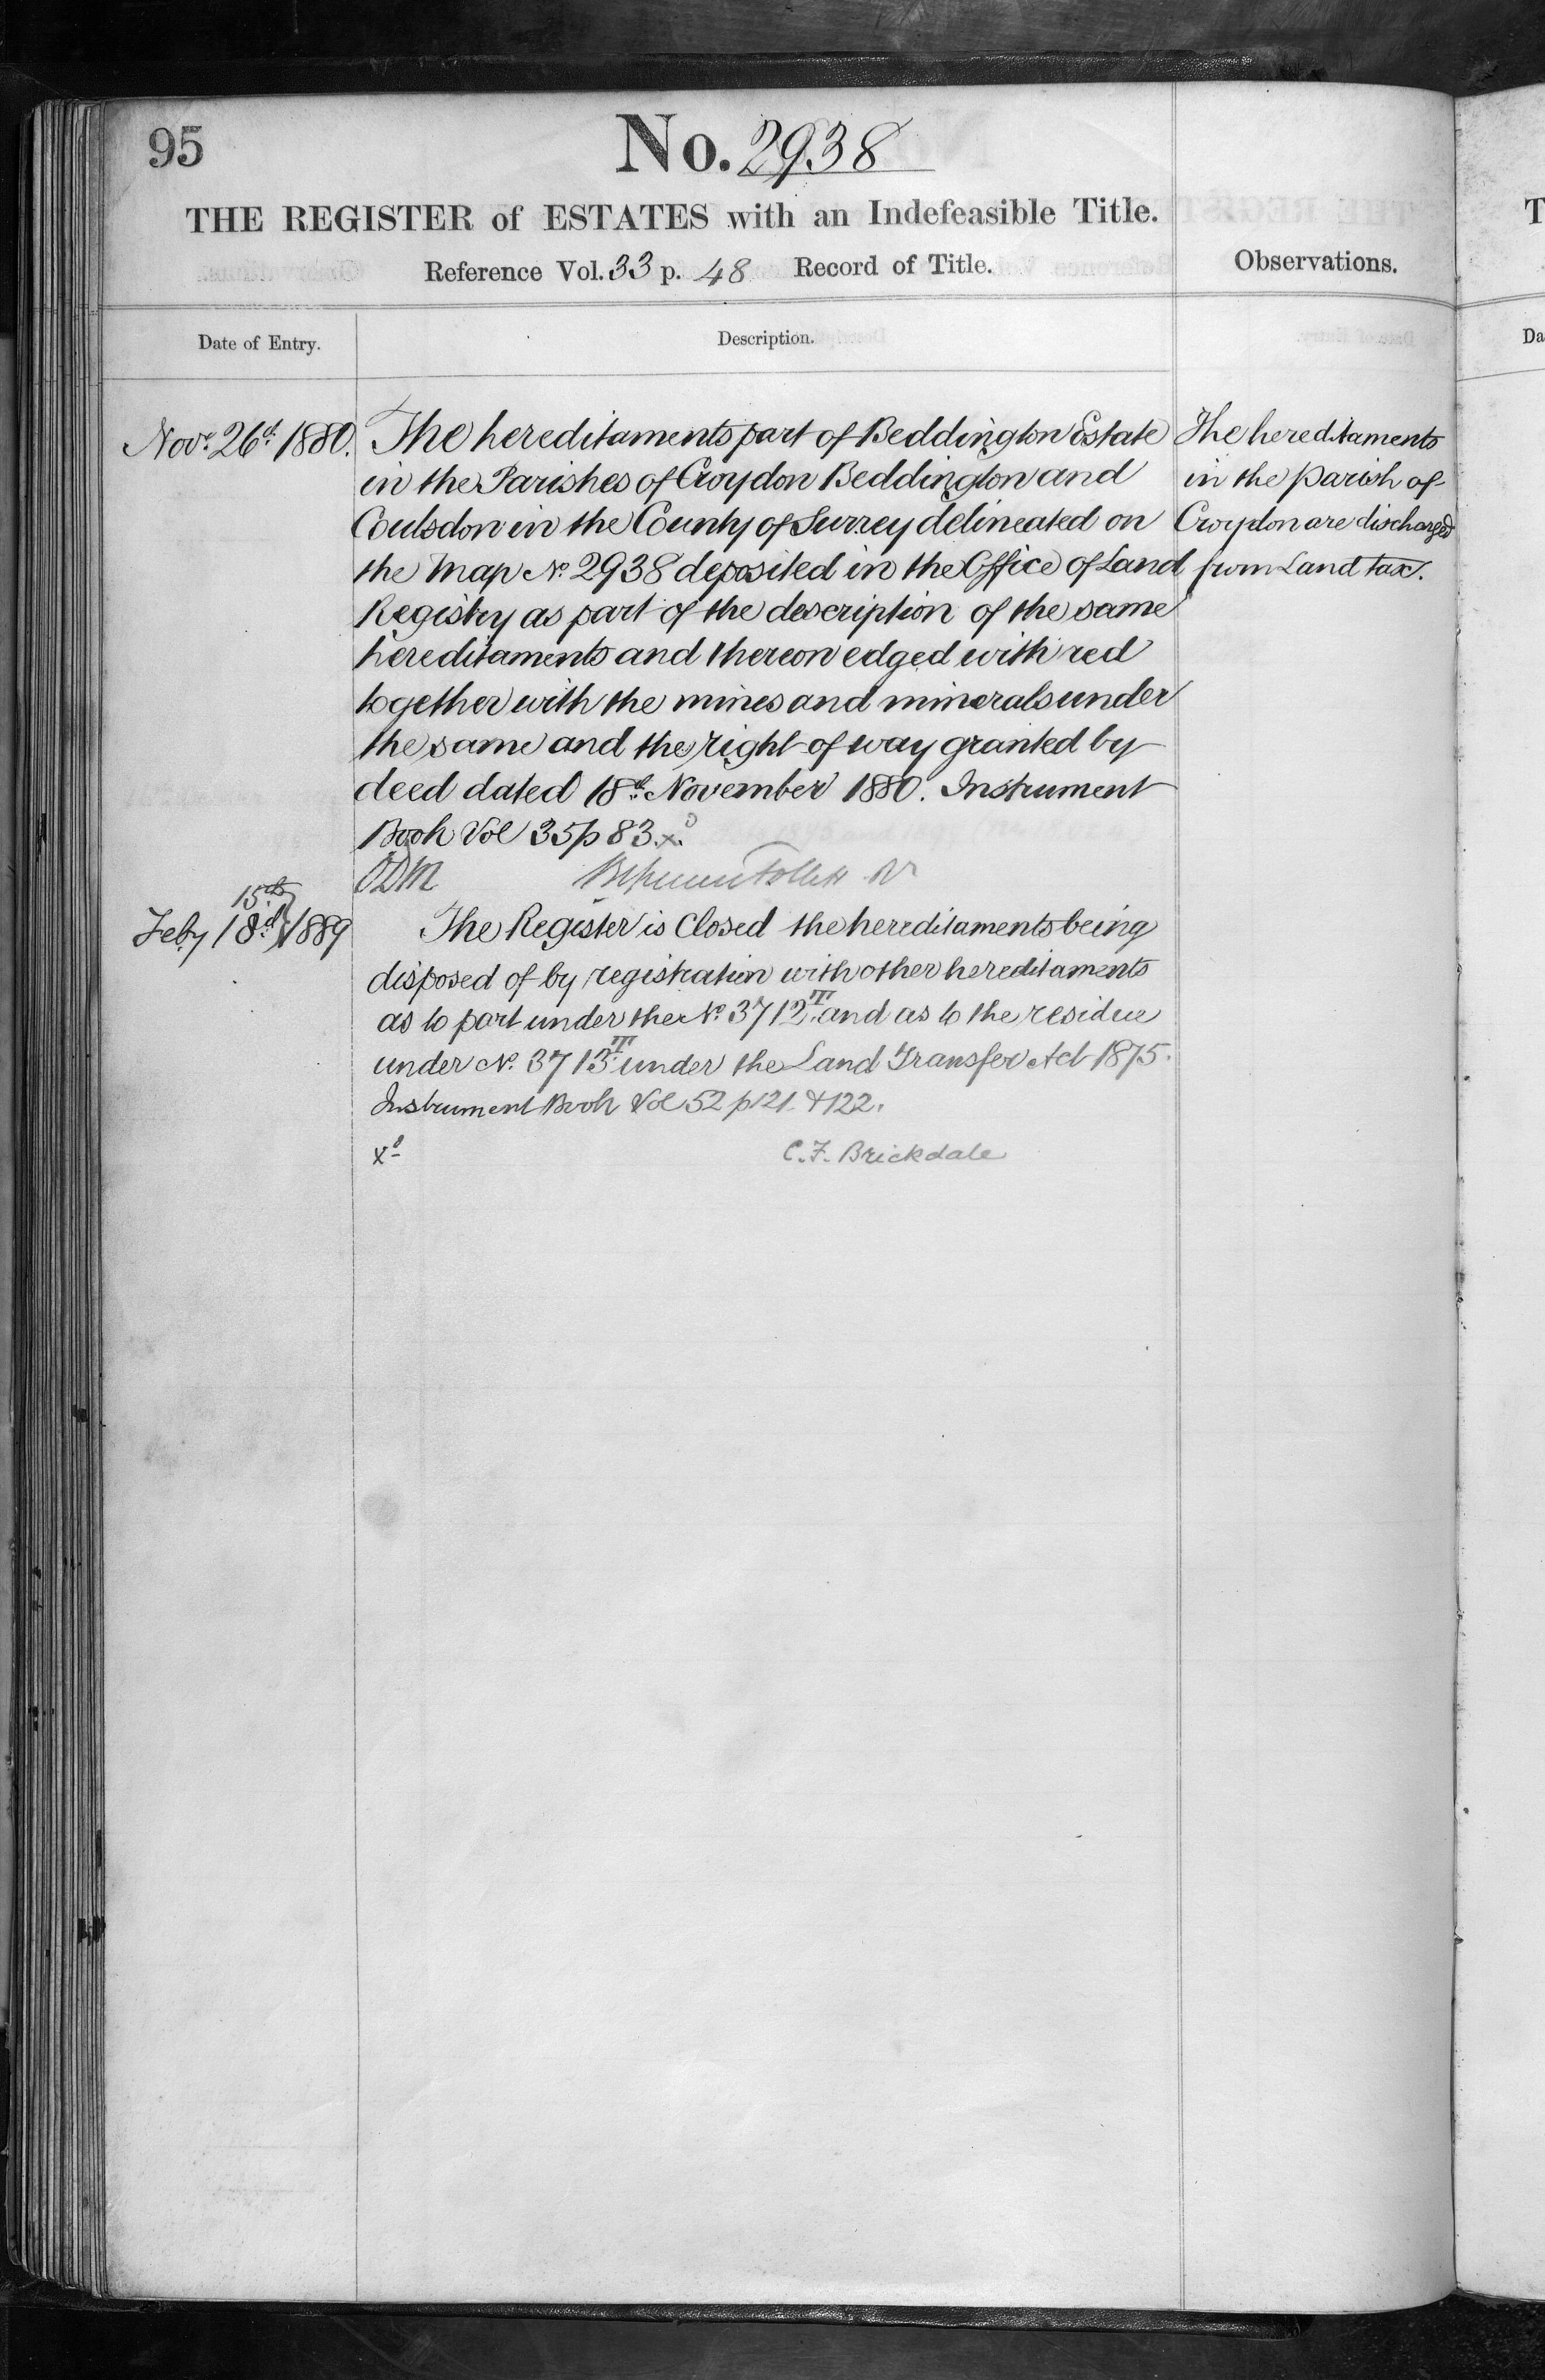 95
No. 2938
THE REGISTER of ESTATES with an Indefeasible Title.
Reference Vol. 33 p. 48 Record of Title.
Observations.
Date of Entry.
Description.
Novr. 26th 1880.
The hereditaments part of Beddington Estate
in the Parishes of Croydon Beddington and
Coulsdon in the County of Surrey delineated on
the Map No. 2938 deposited in the Office of Land
Registry as part of the description of the same
hereditaments and thereon edged with red
together with the mines and minerals under
the same and the right of way granted by
deed dated 18th November 1880. Instrument
Book Vol 35 p 83. xd
The hereditaments
in the parish of
Croydon are discharged
from Land tax.
Follett
15th
Feby 18th 1889
The Register is Closed the hereditaments being
disposed of by registration with other hereditaments
as to part under the No. 3712T and as to the residue
under No. 3713T under the Land Transfer Act 1875.
Instrument Book Vol 52 p 121 & 122.
xd
C. F. Brickdale
T
Da